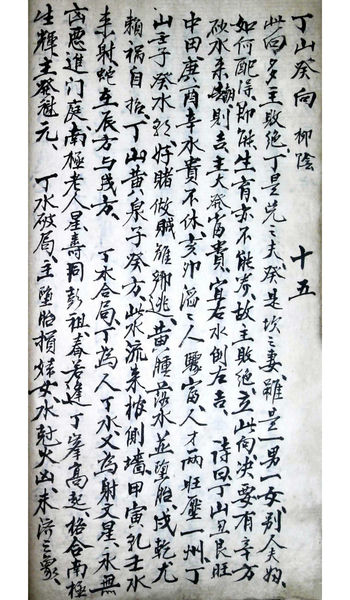 丁山癸向 柳陰 十五
此向多主敗絕丁是兌之夫癸是坎之妻雖是一男一女別人夫婦
如何配得即能生育亦不能濟故主敗絕立此向決要有辛方
砂水來朝則吉主大發富貴宜右水倒左吉 詩曰丁山丑艮旺
中田庚酉辛水貴不休亥卯滔滔人驟富人才兩旺壓一州丁
山壬子癸水彩好賭做賊難逃黃腫落水並墮胎戌乾尤
賴禍自招丁山黃泉子癸方此水流來被倒墻甲寅乳壬水
來射蛇在辰方与戌方 丁水合局丁為人丁水又為射文星永無
凶惡進门庭南極老人星壽同彭祖春若逢丁峯高起格合南極
生輝主發魁元 丁水破局主墮胎損妹女水尅火凶未济之象